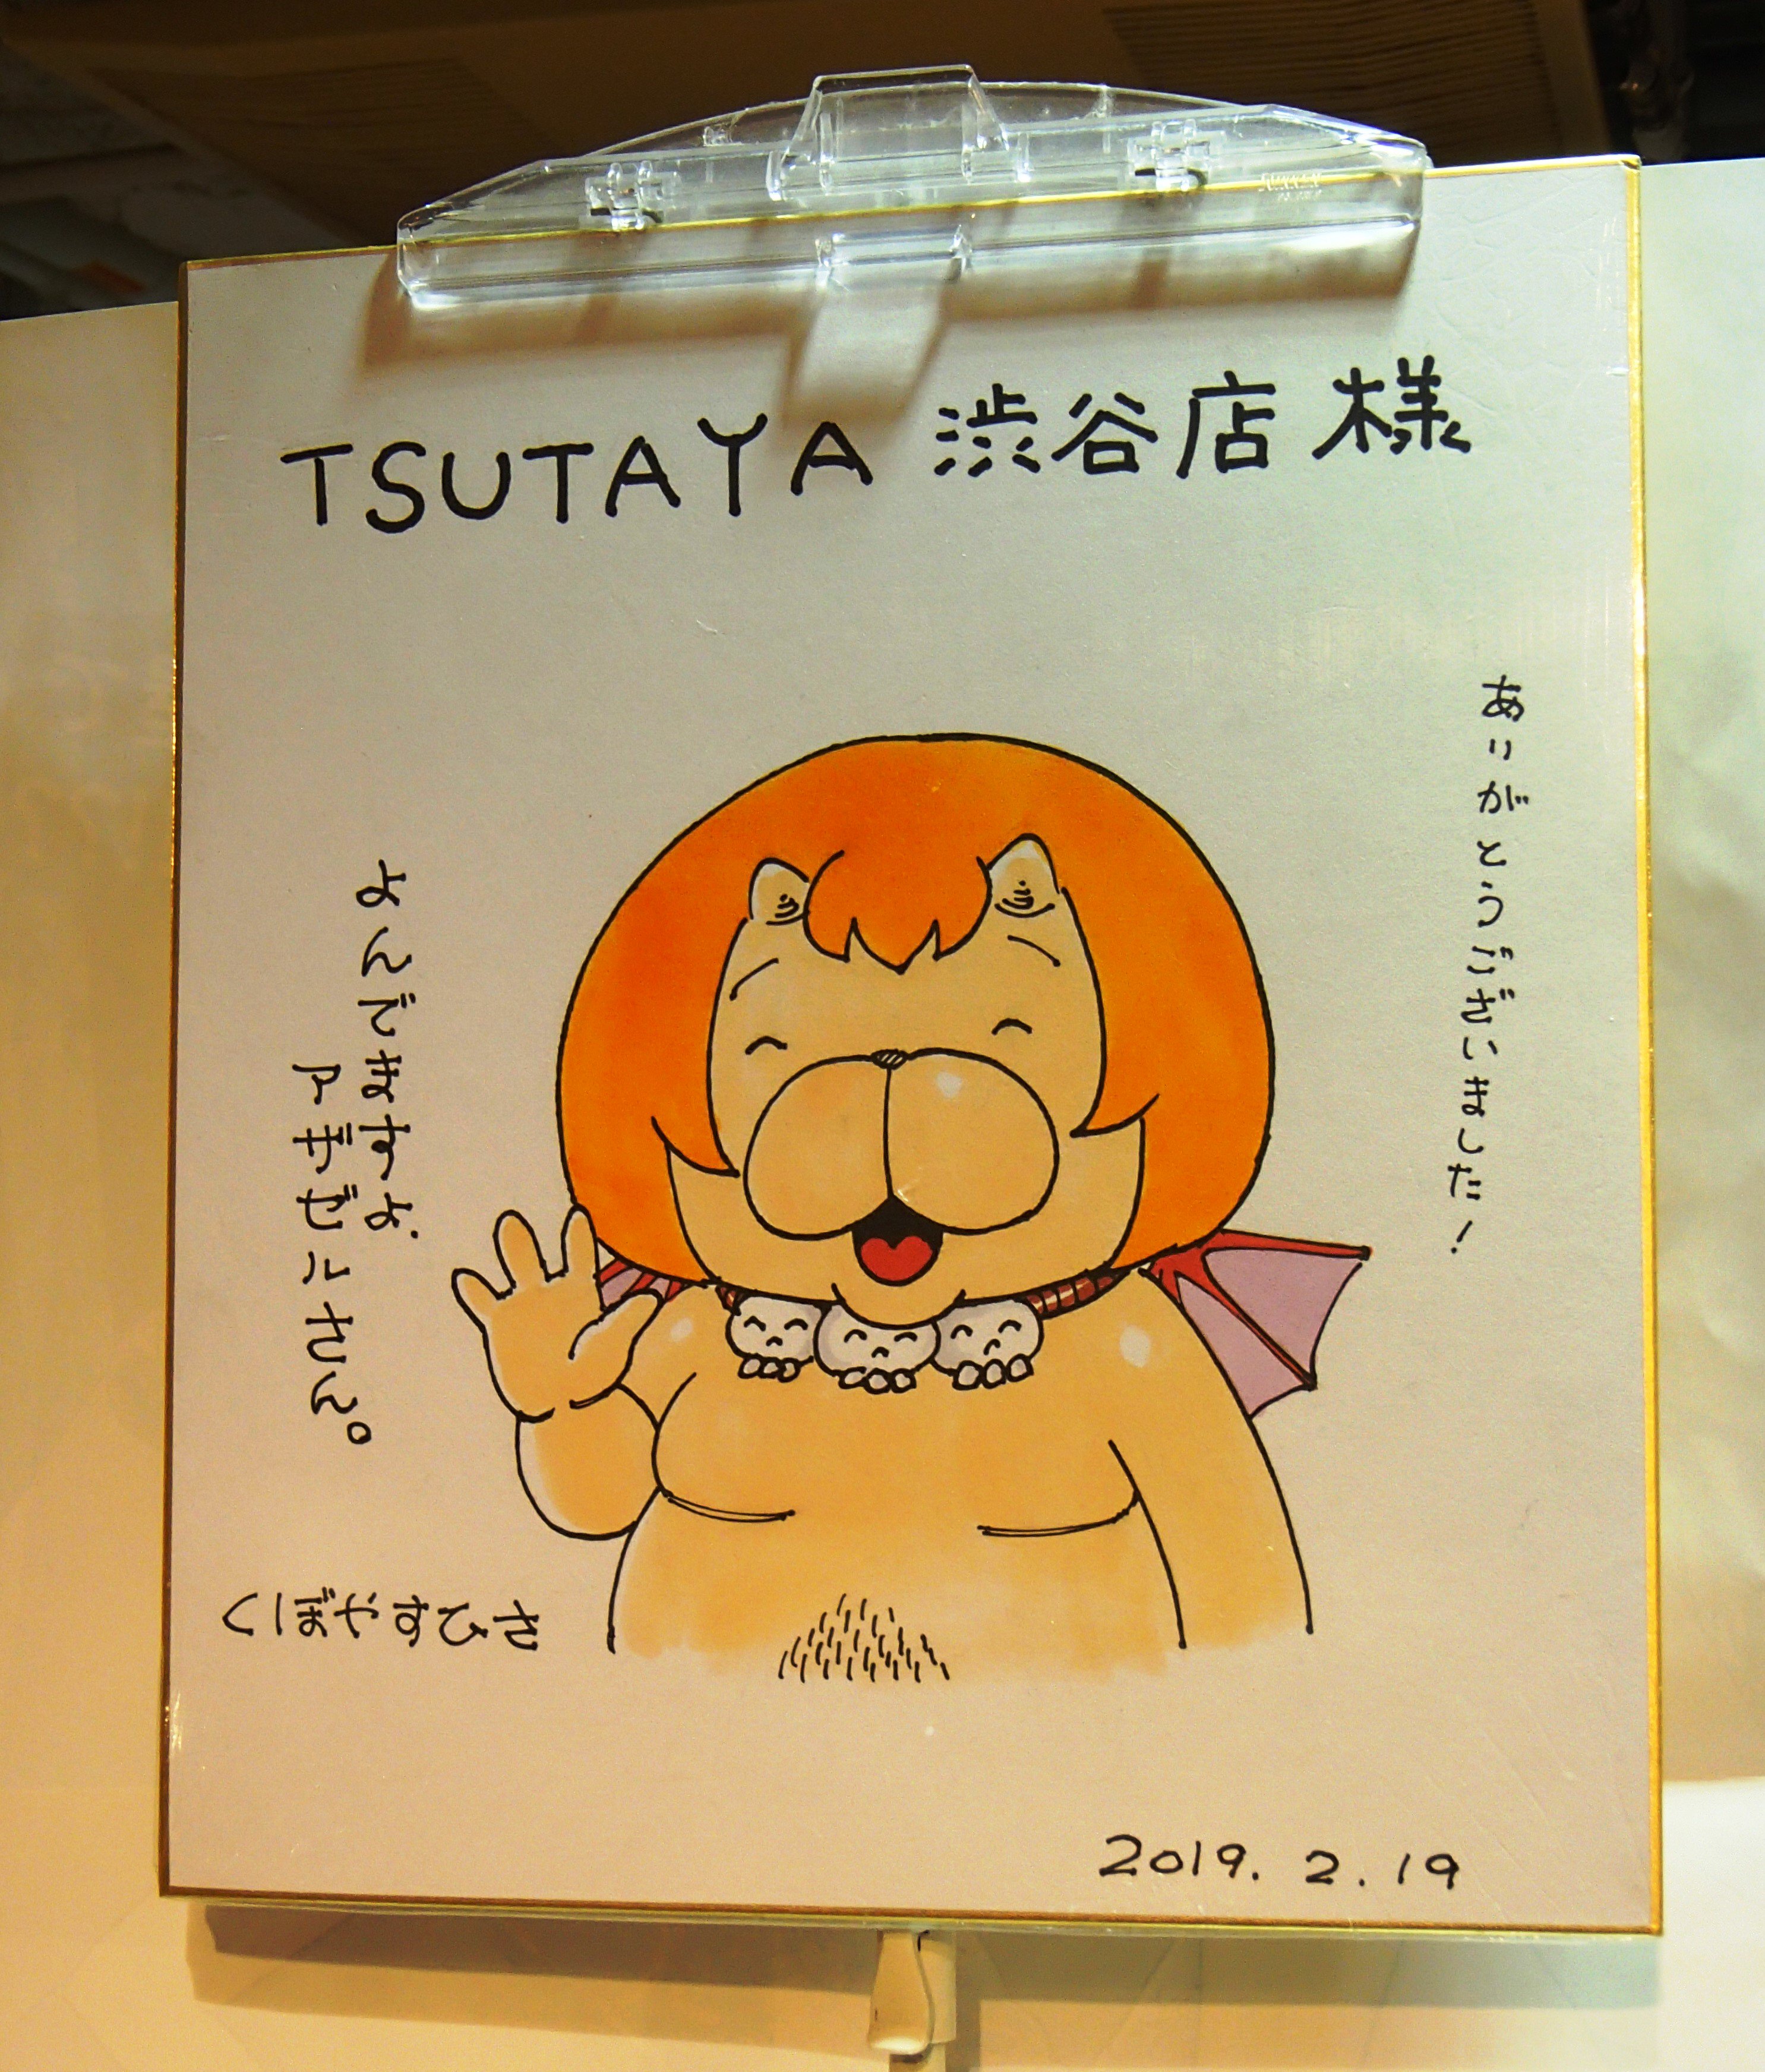 TSUTAYA 渋谷店 様
ありがとうございました!
よんでますよ、
アザゼルさん。
くぼやすひさ
2019. 2. 19